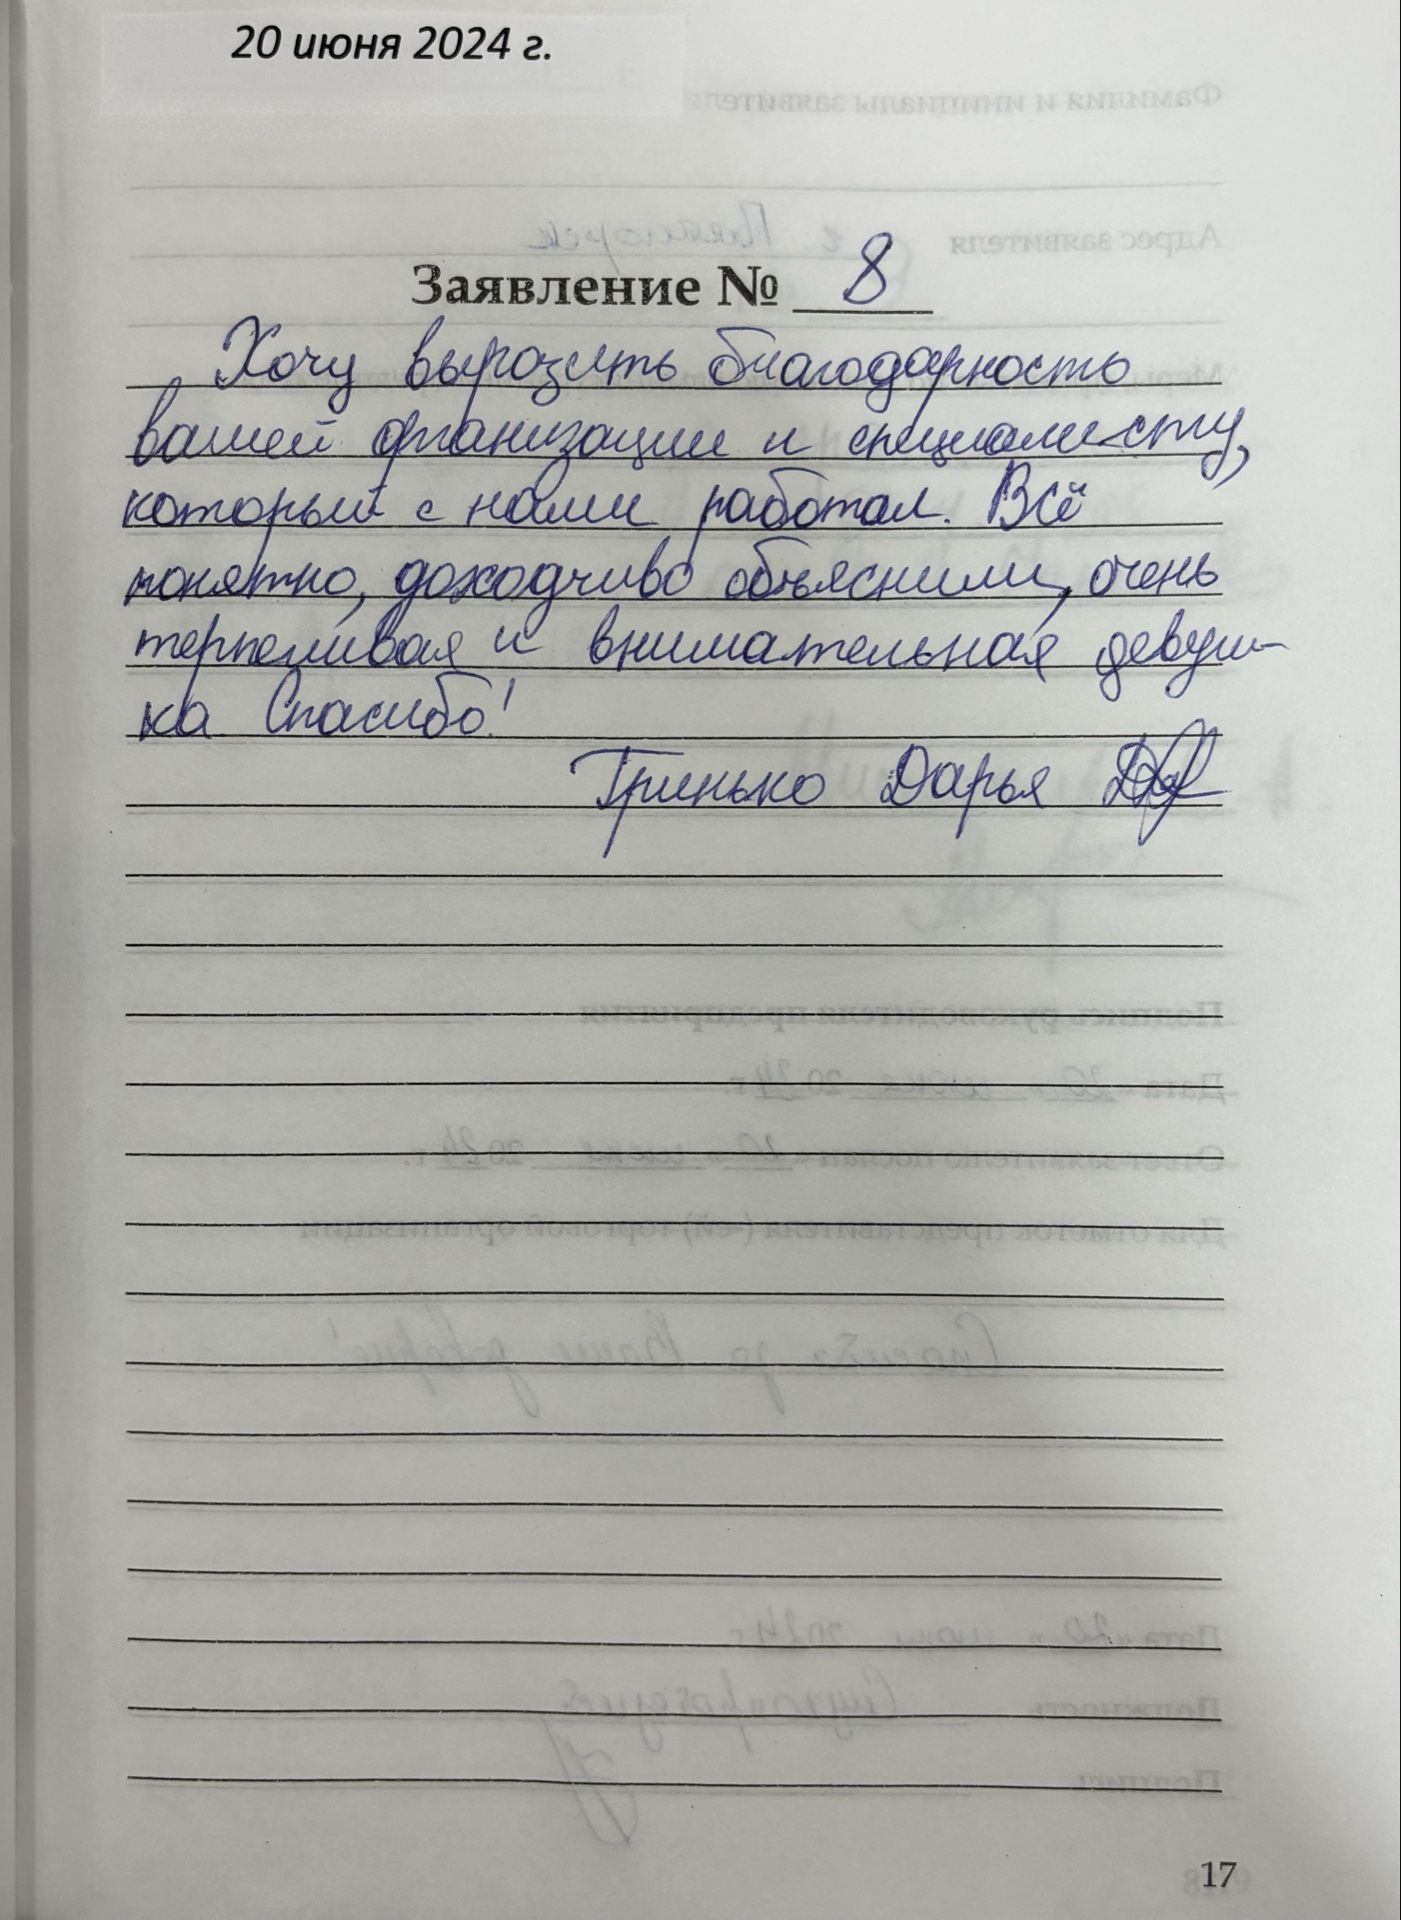 20 июня 2024 г.
Заявление № 8
Хочу выразить благодарность
вашей организации и специалисту,
который с нами работал. Всё
понятно, доходчиво объяснили, очень
терпеливая и внимательная девуш-
ка Спасибо!
Гринько Дарья
17